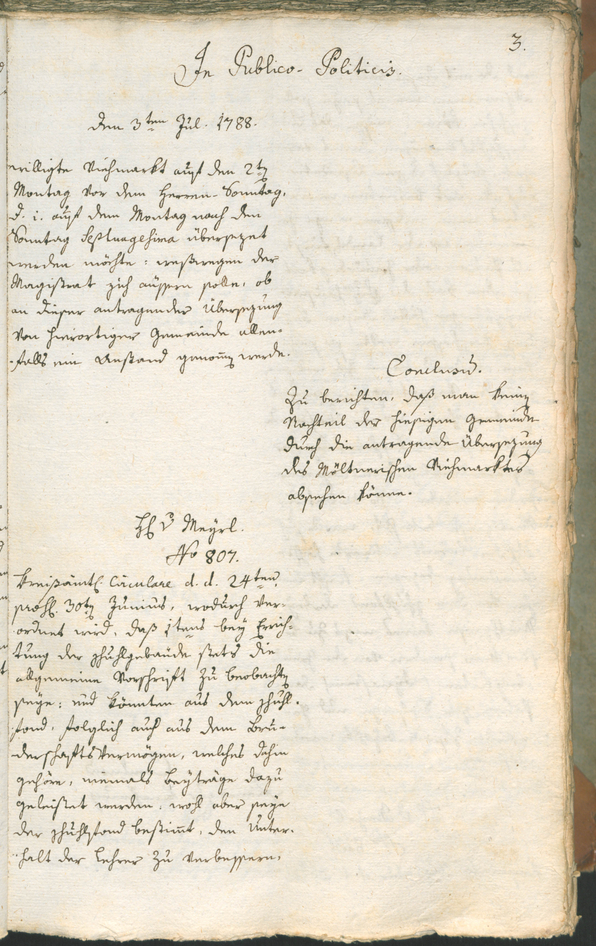 3.
In Publico-Politicis.
den 3ten Jul. 1788.
willigte Viehmarkt auf den 2tn
Montag vor dem Herren-Sonntag,
d. i. auf dem Montag nach den
Sonntag Septuagesima übersezet
werden möchte: weßwegen der
Magistrat sich äussern solle, ob
an dieser antragender Übersezung
von hierortiger Gemeinde allen-
falls ein Anstand genomn werde.
Conclusum.
Zu berichten, daß man keinen
Nachteil der hiesigen Gemeinde
durch die antragende Übersezung
des Möltnerischen Viehmarktes
absehen könne.
H. v Meyrl.
No 807.
Kreisämtl. Circulare d. d. 24ten,
præs. 30tn Junius, wodurch ver-
ordnet wird, daß 1tens bey Errich-
tung der Schuhlgebäude stets die
allgemeine Vorschrift zu beobachtn
seye: und könnten aus dem Schuhl-
fond, folglich auch aus dem Bru-
derschaftsvermögen, welches dahin
gehöre, niemals Beyträge dazu
geleistet werden, wohl aber seye
der Schuhlfond bestimt, den Unter-
halt der Lehrer zu verbessern,